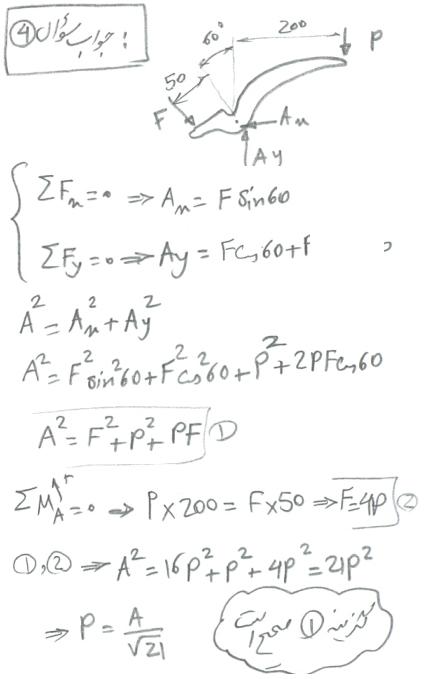 ④ جواب سؤال :
60° 200 P
50
F Ax
Ay
ΣFx = 0 ⇒ Ax = F Sin60
ΣFy = 0 ⇒ Ay = Fcos60+f
A² = Ax² + Ay²
A² = F²sin²60 + F²cos²60 + P² + 2PFcos60
A² = F² + P² + PF ①
ΣM_A = 0 ⇒ P×200 = F×50 ⇒ F=4P ②
①,② ⇒ A² = 16P² + P² + 4P² = 21P²
⇒ P = A/√21
گزینه ① صحیح است